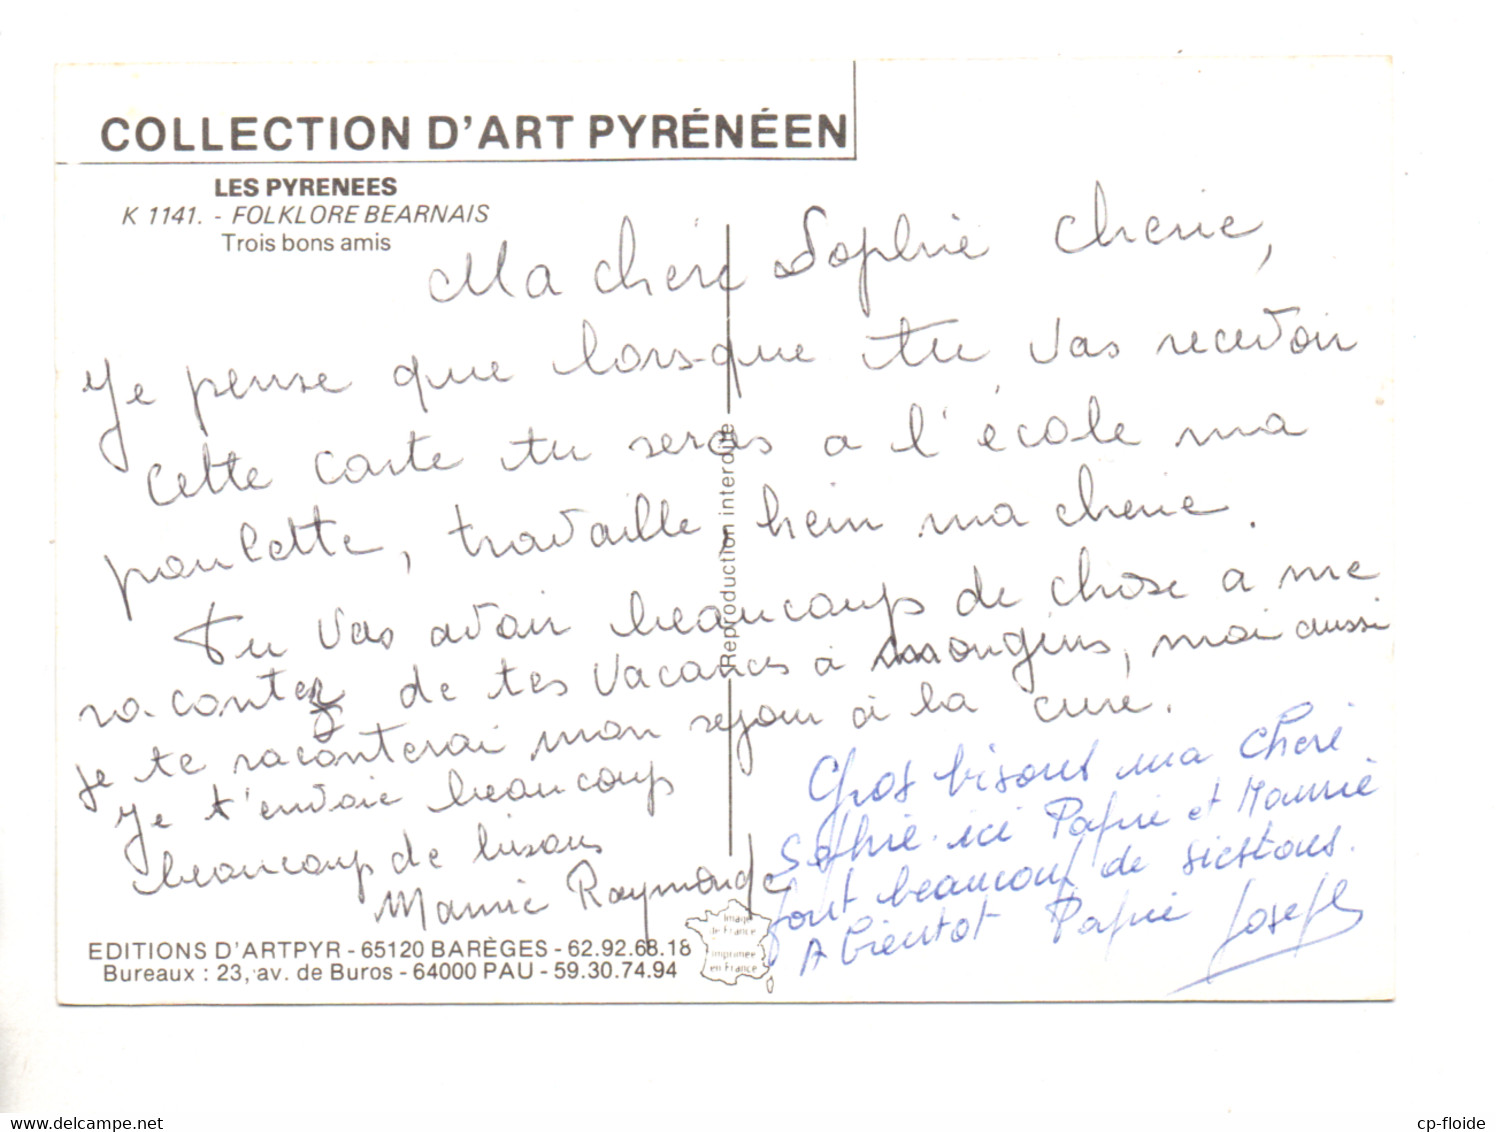 COLLECTION D'ART PYRÉNÉEN
LES PYRENEES
K 1141. - FOLKLORE BEARNAIS
Trois bons amis
Ma chère Sophie cherie,
Je pense que lors-que tu vas recevoir
cette carte tu seras a l'école ma
poulette, travaille, hein ma cherie.
Tu vas avoir beaucoups de chose a me
racontez de tes vacances à mongins, moi aussi
je te raconterai mon sejour à la cure.
Je t'envoie beaucoup
beaucoup de bisous
Mamie Raymonde
Gros bisous ma Cheri
Sophie. ici Papie et Mamie
font beaucoup de siestoues.
A Bientot Papie Joseph
Reproduction interdite
EDITIONS D'ARTPYR - 65120 BARÈGES - 62.92.68.18
Bureaux : 23, av. de Buros - 64000 PAU - 59.30.74.94
Image
de France
imprimée
en France
cp-floide